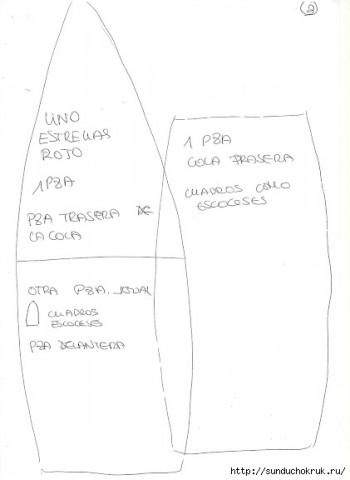 (2)
LINO
ESTRELLAS
ROJO
1 PZA
PZA TRASERA DE
LA COLA
OTRA PZA. IGUAL
CUADROS
ESCOCESES
PZA DELANTERA
1 PZA
COLA TRASERA
CUADROS COMO
ESCOCESES
http://sunduchokruk.ru/